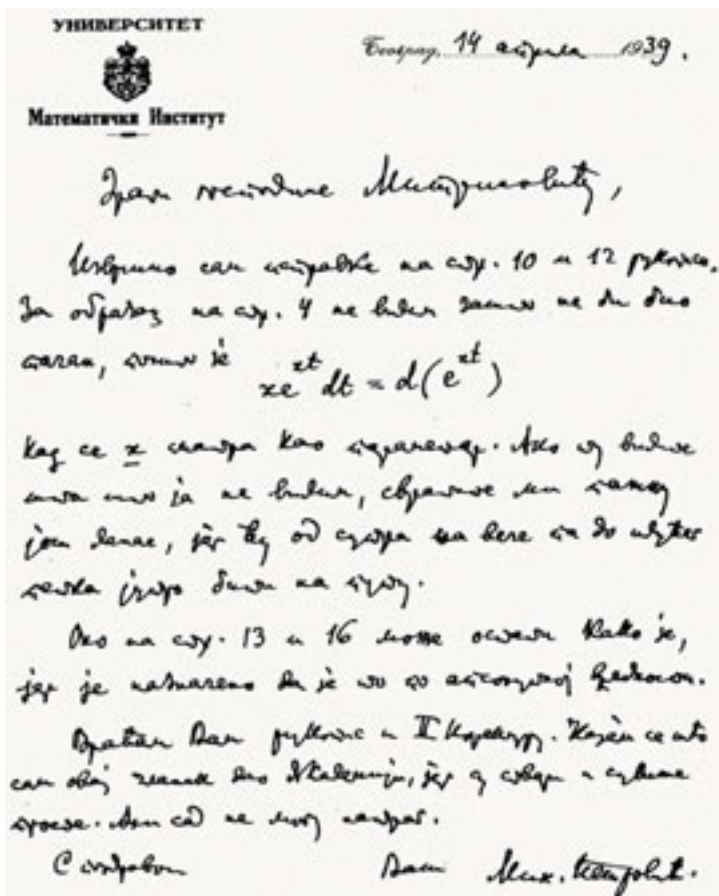 УНИВЕРСИТЕТ
Математички Институт
Београд, 14 априла 1939.
Драги господине Митриновићу,
Извршио сам исправке на стр. 10 и 12 рукописа.
За образац на стр. 4 не видим зашто не би био
тачан, пошто је
xe^{xt} dt = d(e^{xt})
Кад се x сматра као параметар. Ако ту видите
што ја не видим, свратите ми
још данас, јер ћу од сутра на вече па до
петка јутро бити на путу.
Оно на стр. 13 и 16 може остати како је,
јер је назначено да је то по апсолутној вредности.
Враћам Вам рукопис и II коректуру. Кајем се што
сам овај чланак дао Академији, јер су ствари и сувише
просте. Али сад не могу натраг.
С поздравом
Ваш Мих. Петровић.